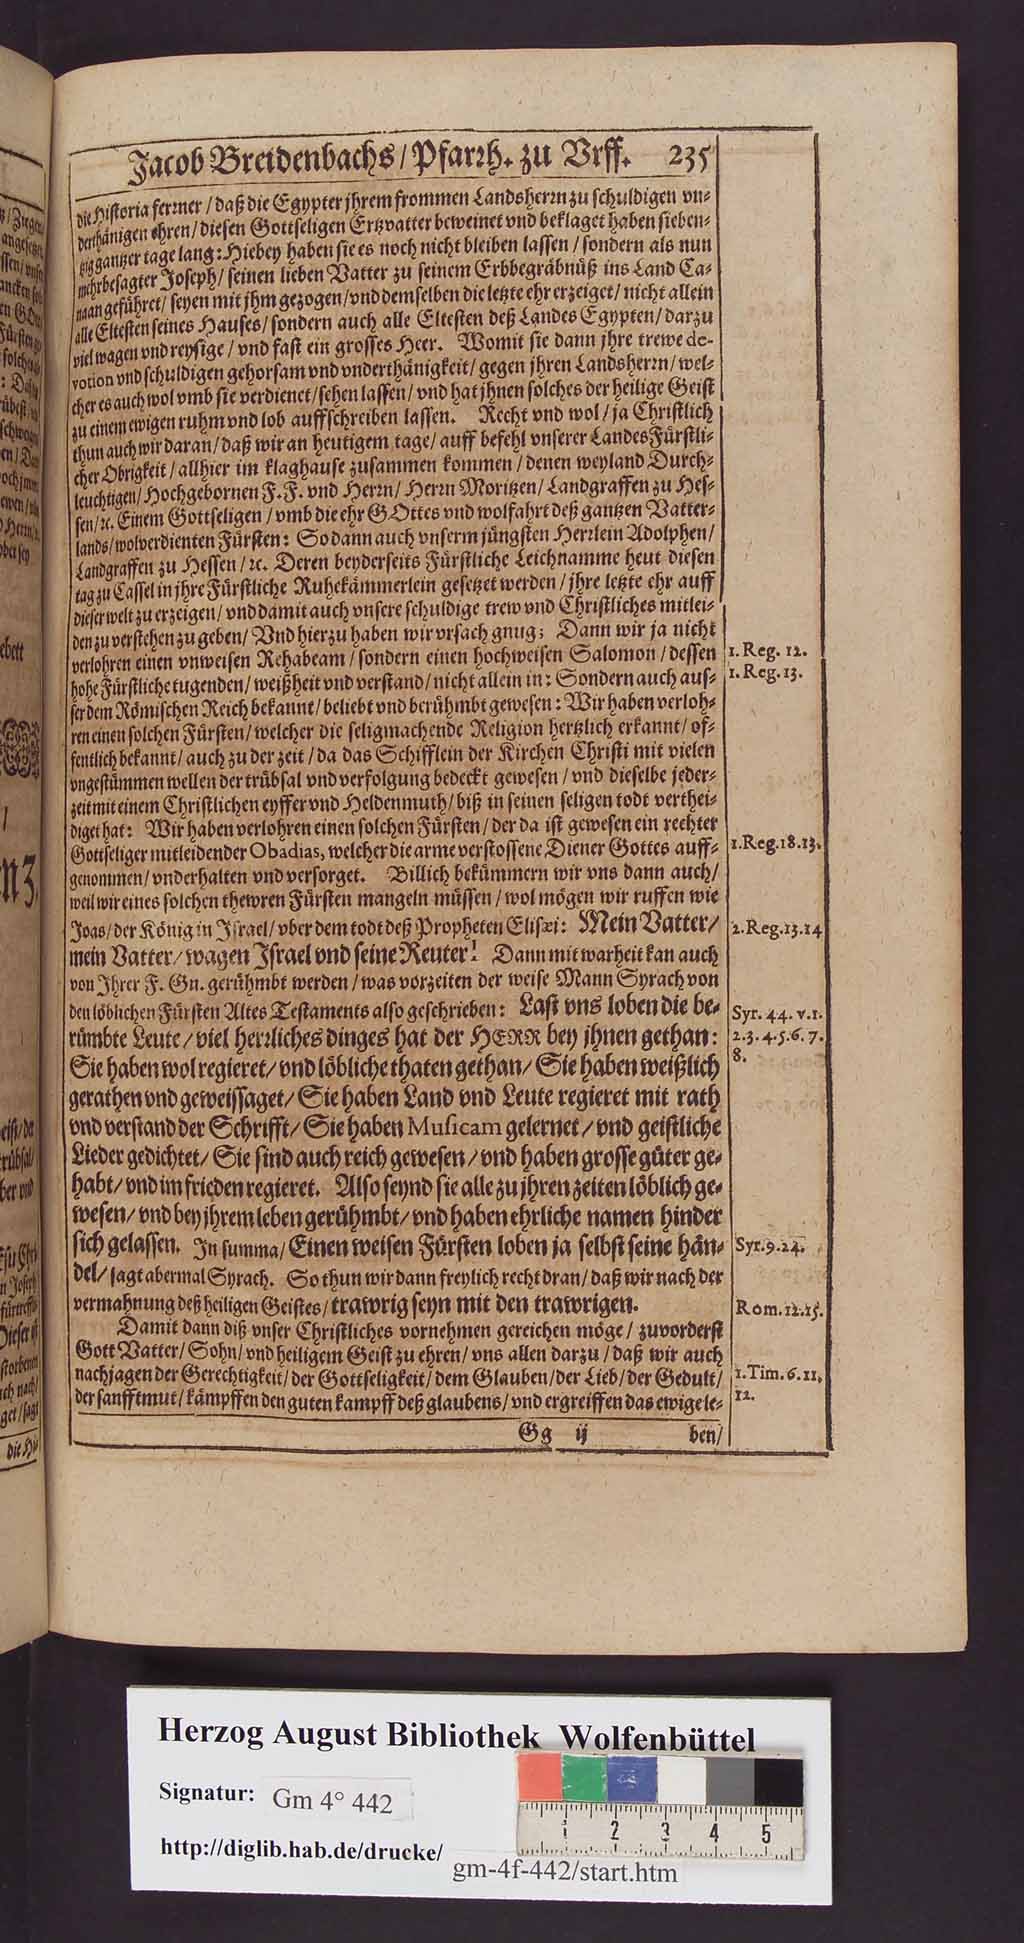 Jacob Breidenbachs / Pfarrh. zu Vrff. 235
die Historia ferrner / daß die Egypter jhrem frommen Landsherrn zu schuldigen vn-
derthänigen ehren / diesen Gottseligen Ertzvatter beweinet vnd beklaget haben sieben-
tzig gantzer tage lang: Hiebey haben sie es noch nicht bleiben lassen / sondern als nun
mehrbesagter Joseph / seinen lieben Vatter zu seinem Erbbegräbnüß ins Land Ca-
naan geführet / seyen mit jhm gezogen / vnd demselben die letzte ehr erzeiget / nicht allein
alle Eltesten seines Hauses / sondern auch alle Eltesten deß Landes Egypten / darzu
viel wagen vnd reysige / vnd fast ein grosses Heer. Womit sie dann jhre trewe de-
votion vnd schuldigen gehorsam vnd vnderthänigkeit / gegen jhren Landsherrn / wel-
cher es auch wol vmb sie verdienet / sehen lassen / vnd hat jhnen solches der heilige Geist
zu einem ewigen ruhm vnd lob auffschreiben lassen. Recht vnd wol / ja Christlich
thun auch wir daran / daß wir an heutigem tage / auff befehl vnserer LandesFürstli-
cher Obrigkeit / allhier im klaghause zusammen kommen / denen weyland Durch-
leuchtigen / Hochgebornen F. F. vnd Herrn / Herrn Moritzen / Landgraffen zu Hes-
sen / ꝛc. Einem Gottseligen / vmb die ehr GOttes vnd wolfahrt deß gantzen Vatter-
lands / wolverdienten Fürsten: So dann auch vnserm jüngsten Herrlein Adolphen /
Landgraffen zu Hessen / ꝛc. Deren beyderseits Fürstliche Leichnamme heut diesen
tag zu Cassel in jhre Fürstliche Ruhekämmerlein gesetzet werden / jhre letzte ehr auff
dieser welt zu erzeigen / vnd damit auch vnsere schuldige trew vnd Christliches mitlei-
den zu verstehen zu geben / Vnd hierzu haben wir vrsach gnug; Dann wir ja nicht
verlohren einen vnweisen Rehabeam / sondern einen hochweisen Salomon / dessen
1. Reg. 12.
hohe Fürstliche tugenden / weißheit vnd verstand / nicht allein in: Sondern auch aus-
1. Reg. 13.
ser dem Römischen Reich bekannt / beliebt vnd berühmbt gewesen: Wir haben verloh-
ren einen solchen Fürsten / welcher die seligmachende Religion hertzlich erkannt / of-
fentlich bekannt / auch zu der zeit / da das Schifflein der Kirchen Christi mit vielen
vngestümmen wellen der trübsal vnd verfolgung bedeckt gewesen / vnd dieselbe jeder-
zeit mit einem Christlichen eyffer vnd Heldenmuth / biß in seinen seligen todt verthei-
diget hat: Wir haben verlohren einen solchen Fürsten / der da ist gewesen ein rechter
Gottseliger mitleidender Obadias, welcher die arme verstossene Diener Gottes auff-
1. Reg. 18. 13.
genommen / vnderhalten vnd versorget. Billich bekümmern wir vns dann auch /
weil wir eines solchen thewren Fürsten mangeln müssen / wol mögen wir ruffen wie
Joas / der König in Israel / vber dem todt deß Propheten Elisæi: Mein Vatter /
2. Reg. 13. 14
mein Vatter / wagen Israel vnd seine Reuter! Dann mit warheit kan auch
von Ihrer F. Gn. gerühmbt werden / was vorzeiten der weise Mann Syrach von
den löblichen Fürsten Altes Testaments also geschrieben: Last vns loben die be-
Syr. 44. v. 1.
rümbte Leute / viel herrliches dinges hat der HERR bey jhnen gethan:
2. 3. 4. 5. 6. 7.
Sie haben wol regieret / vnd löbliche thaten gethan / Sie haben weißlich
8.
gerathen vnd geweissaget / Sie haben Land vnd Leute regieret mit rath
vnd verstand der Schrifft / Sie haben Musicam gelernet / vnd geistliche
Lieder gedichtet / Sie sind auch reich gewesen / vnd haben grosse güter ge-
habt / vnd im frieden regieret. Also seynd sie alle zu jhren zeiten löblich ge-
wesen / vnd bey jhrem leben gerühmbt / vnd haben ehrliche namen hinder
sich gelassen. In summa / Einen weisen Fürsten loben ja selbst seine hän-
Syr. 9. 24.
del / sagt abermal Syrach. So thun wir dann freylich recht dran / daß wir nach der
vermahnung deß heiligen Geistes / trawrig seyn mit den trawrigen.
Rom. 12. 15.
Damit dann diß vnser Christliches vornehmen gereichen möge / zuvorderst
Gott Vatter / Sohn / vnd heiligem Geist zu ehren / vns allen darzu / daß wir auch
nachjagen der Gerechtigkeit / der Gottseligkeit / dem Glauben / der Lieb / der Gedult /
1. Tim. 6. 11.
der sanfftmut / kämpffen den guten kampff deß glaubens / vnd ergreiffen das ewige le-
12.
Gg ij ben /
Herzog August Bibliothek Wolfenbüttel
Signatur: Gm 4° 442
http://diglib.hab.de/drucke/
gm-4f-442/start.htm
1 2 3 4 5